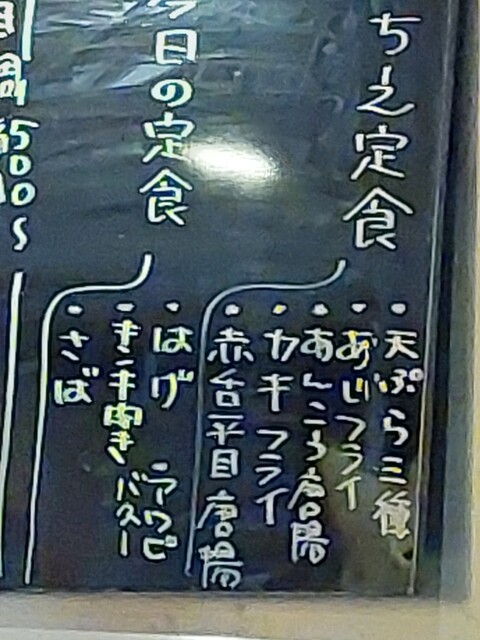 ちえ定食
・天ぷら三種
・あじフライ
・あんこう唐揚
・カキフライ
・赤舌平目唐揚
今日の定食
・はげ
・アワビ
バター
・さば
500～